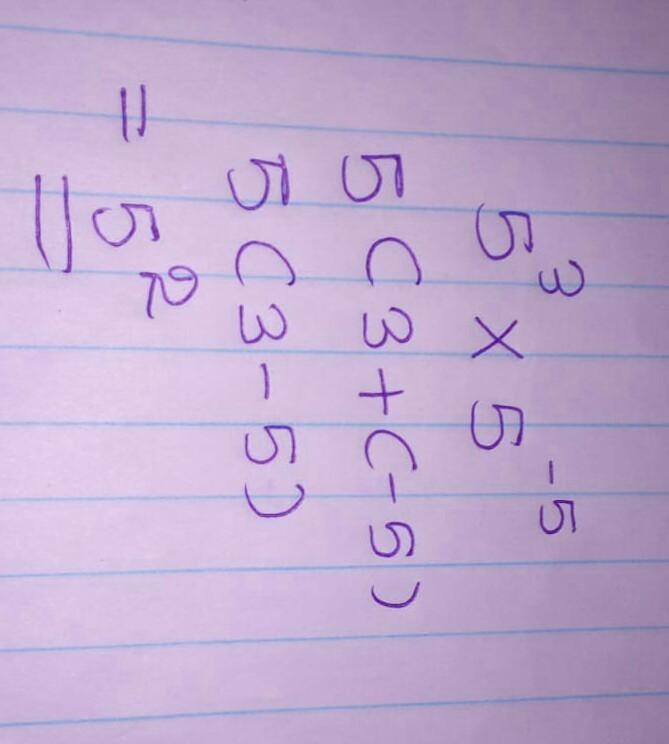 5³ × 5⁻⁵
5 (3 + (-5)
5 (3 - 5)
= 5²